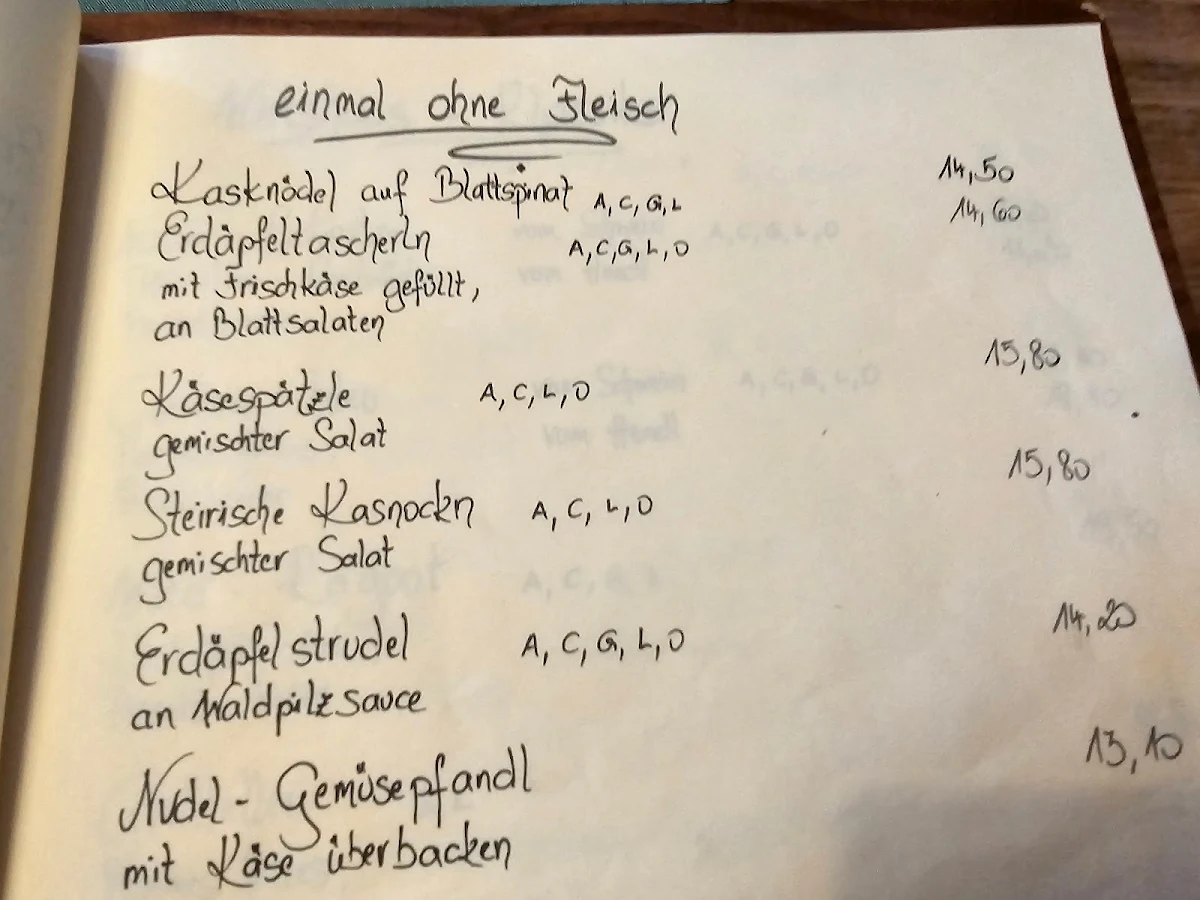 einmal ohne Fleisch
Kasknödel auf Blattspinat A, C, G, L 14,50
Erdäpfeltascherln A, C, G, L, O 14,60
mit Frischkäse gefüllt,
an Blattsalaten
Käsespätzle A, C, L, O 15,80
gemischter Salat
Steirische Kasnockn A, C, L, O 15,80
gemischter Salat
Erdäpfelstrudel A, C, G, L, O 14,20
an Waldpilzsauce
Nudel - Gemüsepfandl 13,10
mit Käse überbacken